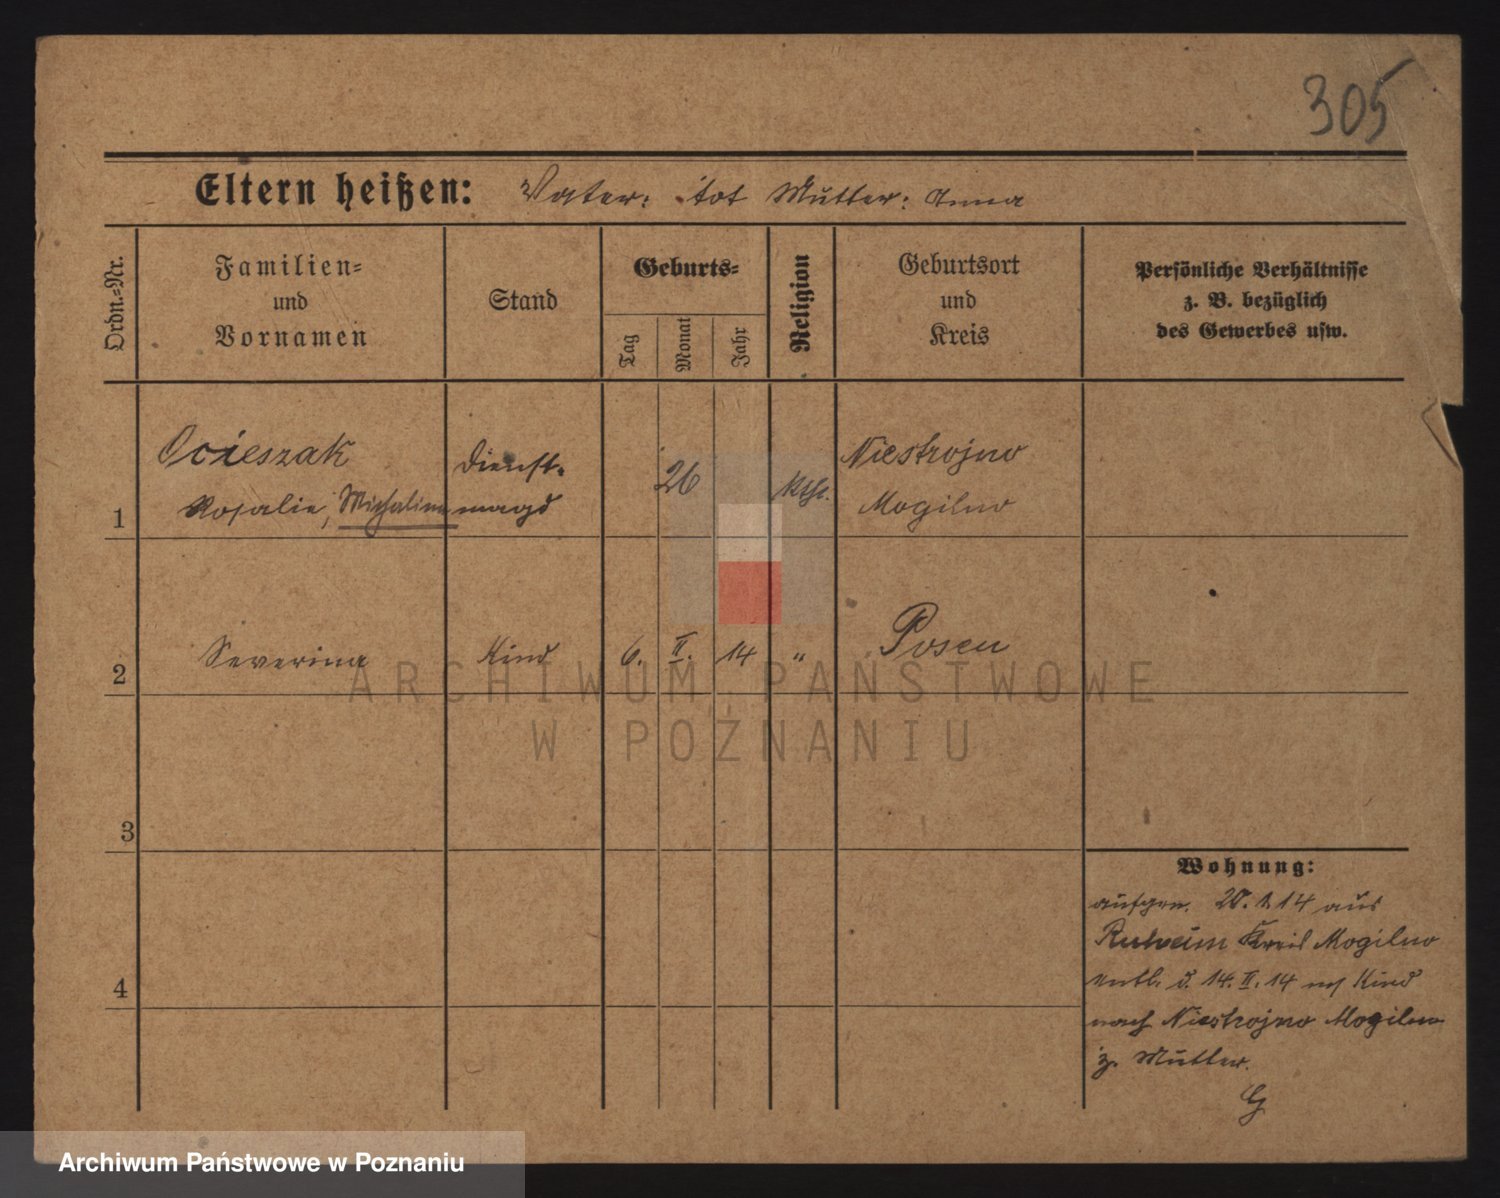 305
Eltern heißen: Vater: tot Mutter: Anna
Ordn.-Nr.
Familien-
und
Vornamen
Stand
Geburts-
Tag
Monat
Jahr
Religion
Geburtsort
und
Kreis
Persönliche Verhältnisse
z. B. bezüglich
des Gewerbes usw.
1
Ocieszak
Rosalie, Michalina
Dienst-
magd
26
kth.
Niestrojno
Mogilno
2
Severina
Kind
6.
II.
14
"
Posen
3
4
Wohnung:
aufgen. 20. 1. 14 aus
Ruheim Kreis Mogilno
entl. d. 14. II. 14 m/ Kind
nach Niestrojno Mogilno
z. Mutter.
G
ARCHIWUM PAŃSTWOWE
W POZNANIU
Archiwum Państwowe w Poznaniu